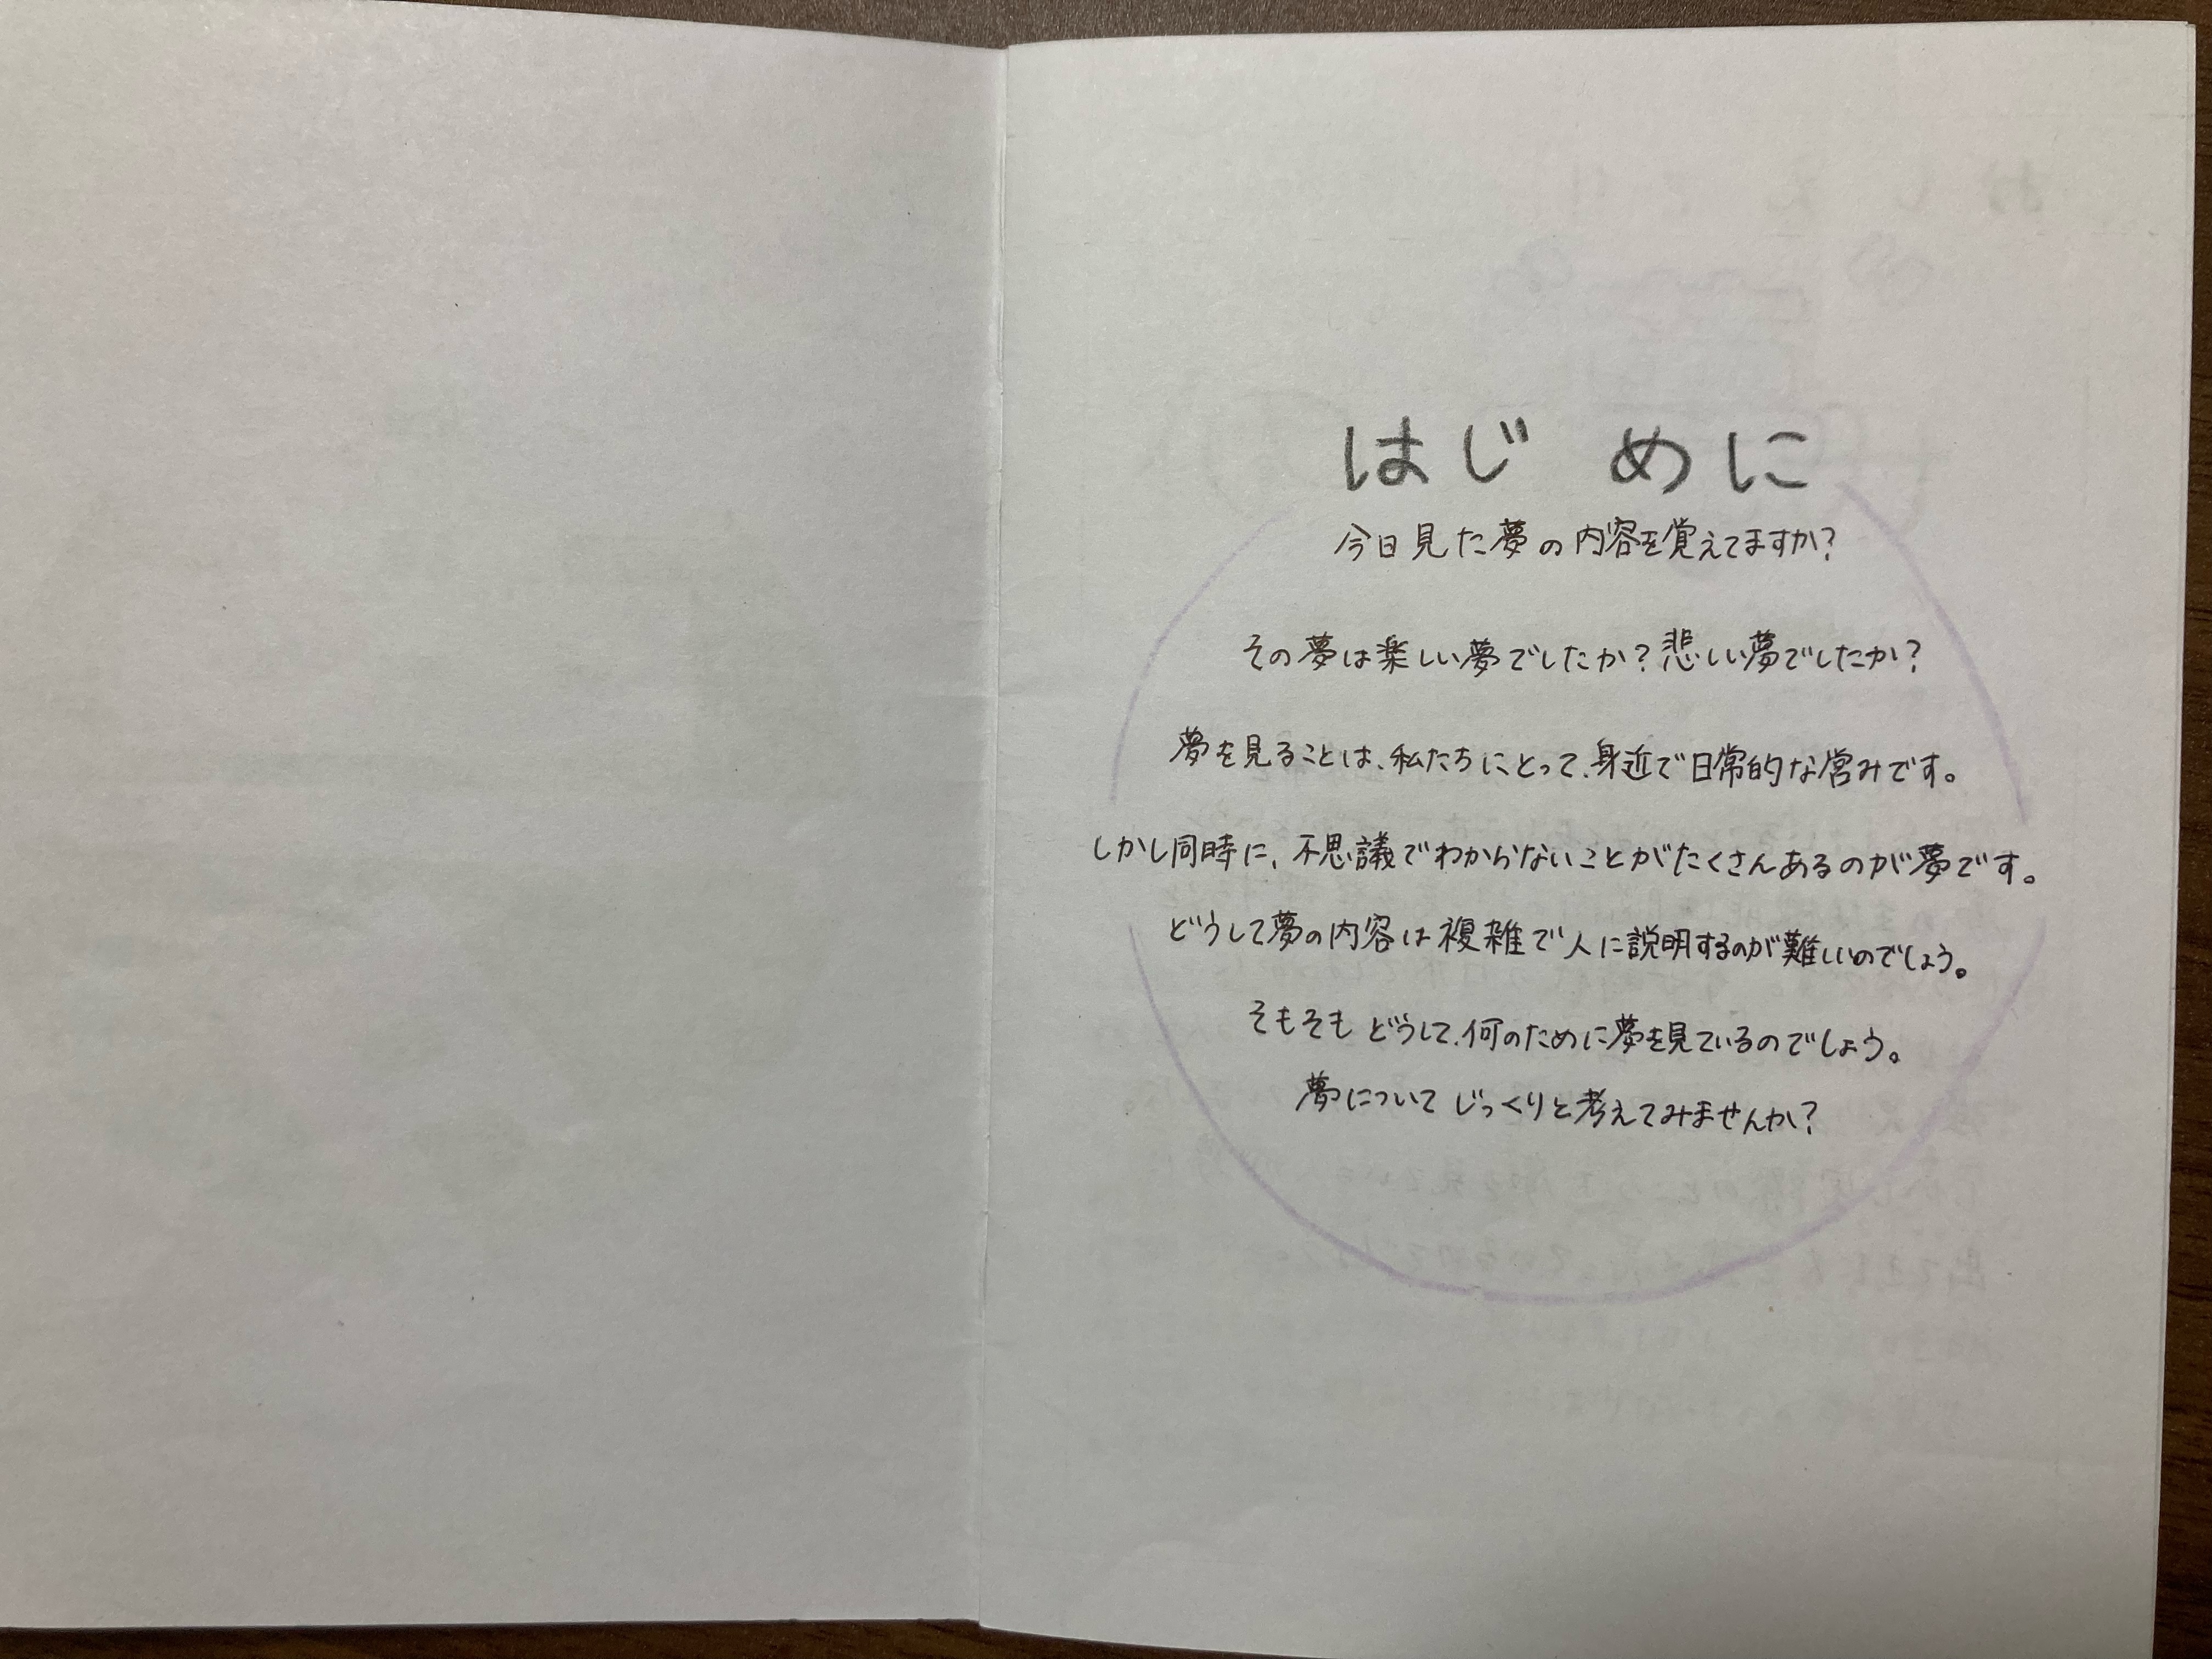 はじめに
今日見た夢の内容を覚えてますか?
その夢は楽しい夢でしたか?悲しい夢でしたか?
夢を見ることは、私たちにとって、身近で日常的な営みです。
しかし同時に、不思議でわからないことがたくさんあるのが夢です。
どうして夢の内容は複雑で人に説明するのが難しいのでしょう。
そもそもどうして、何のために夢を見ているのでしょう。
夢についてじっくりと考えてみませんか?